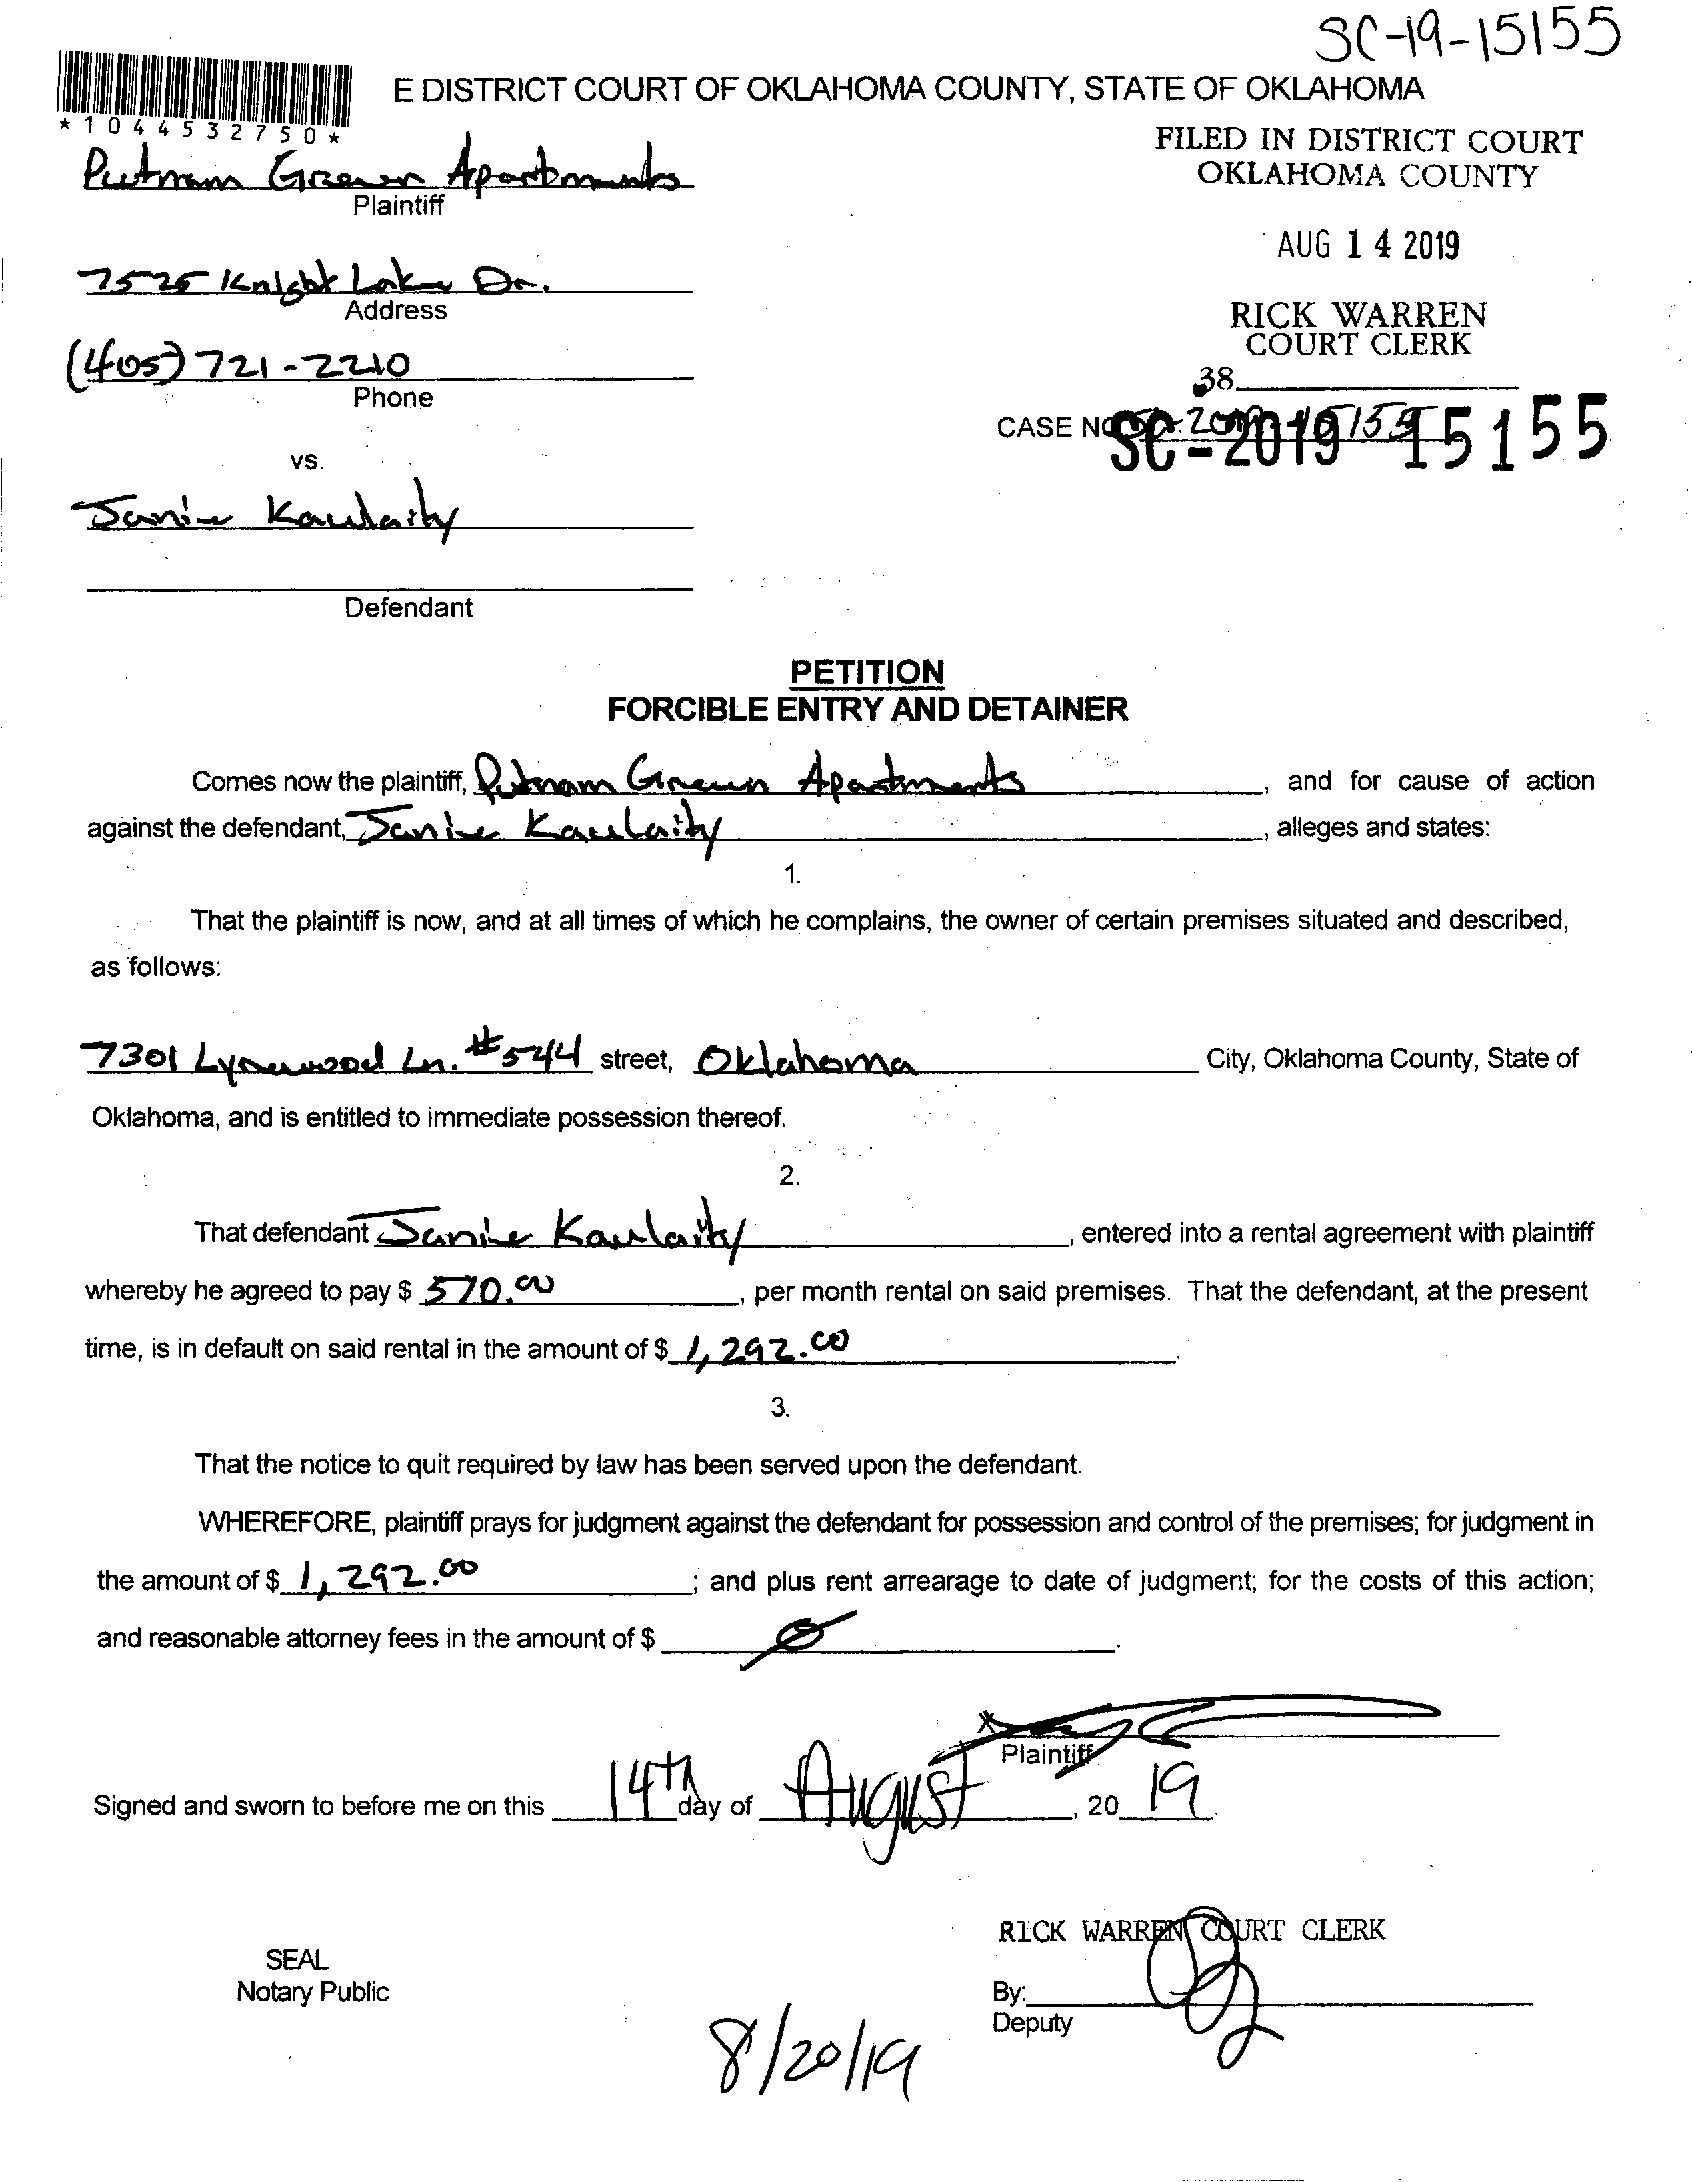 SC-19-15155
E DISTRICT COURT OF OKLAHOMA COUNTY, STATE OF OKLAHOMA
*1044532750*
FILED IN DISTRICT COURT
OKLAHOMA COUNTY
AUG 14 2019
RICK WARREN
COURT CLERK
38
Putnam Green Apartments
Plaintiff
7525 Knight Lake Dr.
Address
(405) 721-2210
Phone
CASE NO. SC-2019-15155
vs.
Janine Kaulaity
Defendant
PETITION
FORCIBLE ENTRY AND DETAINER
Comes now the plaintiff, Putnam Green Apartments, and for cause of action
against the defendant, Janine Kaulaity, alleges and states:
1.
That the plaintiff is now, and at all times of which he complains, the owner of certain premises situated and described,
as follows:
7301 Lynnwood Ln. #544 street, Oklahoma City, Oklahoma County, State of
Oklahoma, and is entitled to immediate possession thereof.
2.
That defendant Janine Kaulaity, entered into a rental agreement with plaintiff
whereby he agreed to pay $ 570.00, per month rental on said premises. That the defendant, at the present
time, is in default on said rental in the amount of $ 1,292.00.
3.
That the notice to quit required by law has been served upon the defendant.
WHEREFORE, plaintiff prays for judgment against the defendant for possession and control of the premises; for judgment in
the amount of $ 1,292.00; and plus rent arrearage to date of judgment; for the costs of this action;
and reasonable attorney fees in the amount of $ 0.
Plaintiff
Signed and sworn to before me on this 14th day of August, 20 19.
RICK WARREN COURT CLERK
SEAL
Notary Public
By:
Deputy
8/20/19